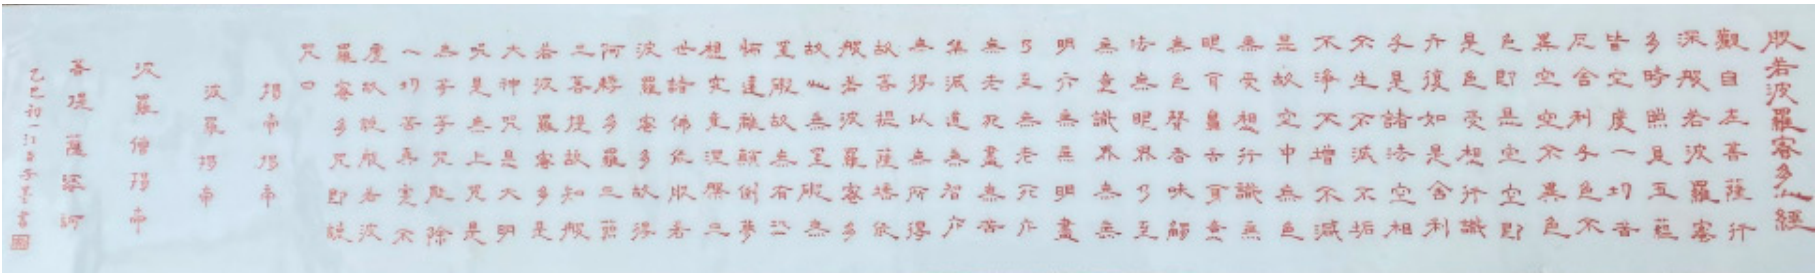 般若波羅蜜多心經
觀自在菩薩行
深般若波羅蜜
多時照見五蘊
皆空度一切苦
厄舍利子色不
異空空不異色
色即是空空即
是色受想行識
亦復如是舍利
子是諸法空相
不生不滅不垢
不淨不增不減
是故空中無色
無受想行識無
眼耳鼻舌身意
無色聲香味觸
法無眼界乃至
無意識界無無
明亦無無明盡
乃至無老死亦
無老死盡無苦
集滅道無智亦
無得以無所得
故菩提薩埵依
般若波羅蜜多
故心無罣礙無
罣礙故無有恐
怖遠離顛倒夢
想究竟涅槃三
世諸佛依般若
波羅蜜多故得
阿耨多羅三藐
三菩提故知般
若波羅蜜多是
大神咒是大明
咒是無上咒是
無等等咒能除
一切苦真實不
虛故說般若波
羅蜜多咒即說
咒曰
揭帝揭帝
波羅揭帝
波羅僧揭帝
菩提薩婆訶
乙巳初一江書